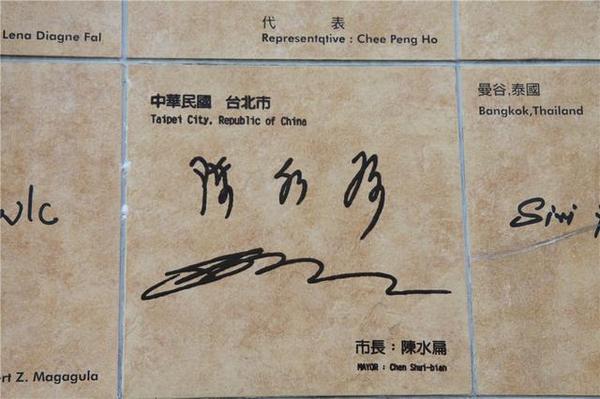 Lena Diagne Fal
代 表
Representqtive : Chee Peng Ho
中華民國 台北市
Taipei City, Republic of China
曼谷,泰國
Bangkok,Thailand
陳水扁
Siri
市長：陳水扁
MAYOR : Chen Shui-bian
rt Z. Magagula